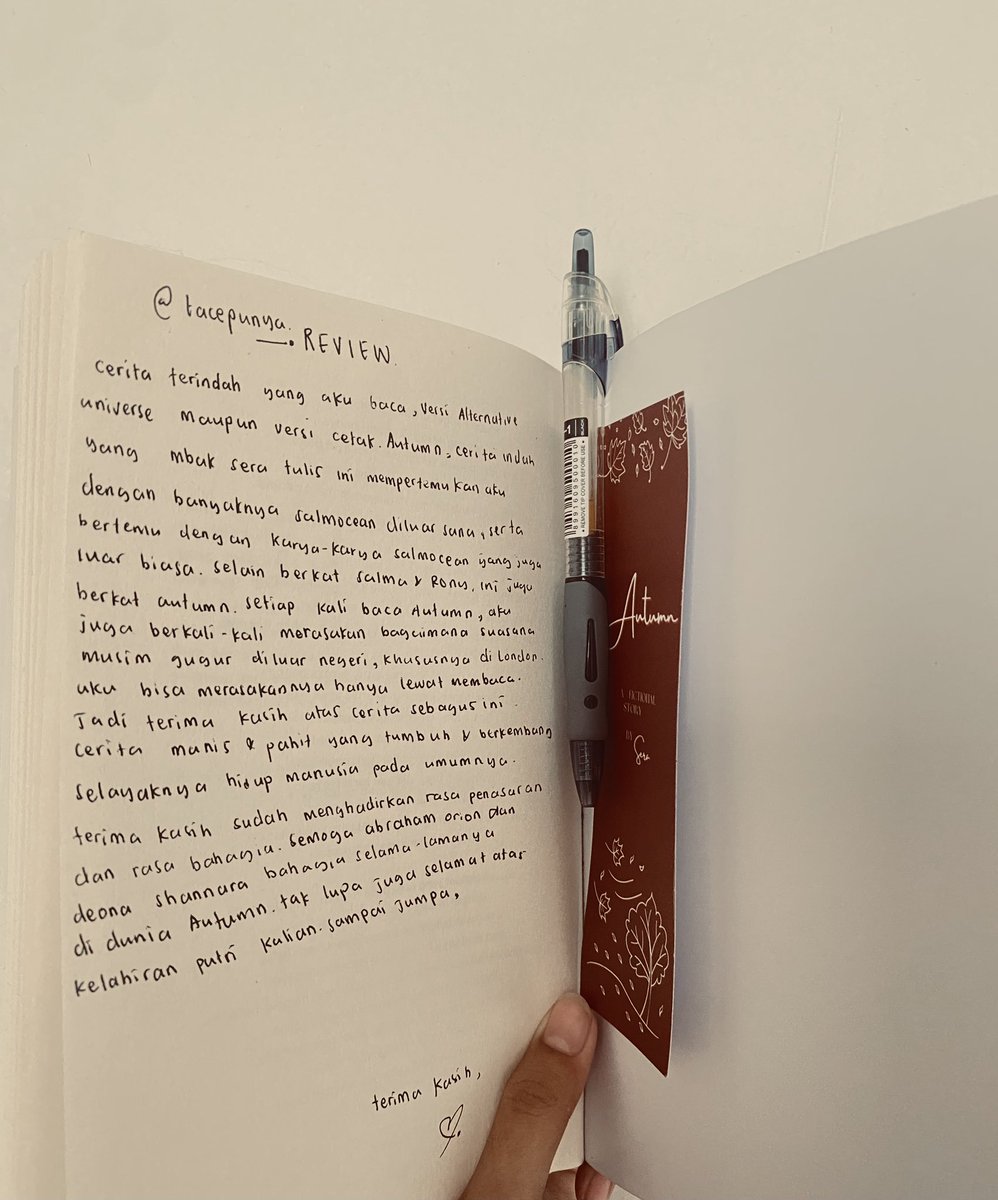 @tacepunya.
REVIEW.
cerita terindah yang aku baca, versi Alternative
universe maupun versi cetak. Autumn, cerita indah
yang mbak sera tulis ini mempertemukan aku
dengan banyaknya salmocean diluar sana, serta
bertemu dengan karya-karya salmocean yang juga
luar biasa. selain berkat salma & Rony, ini juga
berkat autumn. setiap kali baca Autumn, aku
juga berkali-kali merasakan bagaimana suasana
musim gugur diluar negeri, khususnya di London.
aku bisa merasakannya hanya lewat membaca.
Jadi terima kasih atas cerita sebagus ini.
cerita manis & pahit yang tumbuh & berkembang
selayaknya hidup manusia pada umumnya.
terima kasih sudah menghadirkan rasa penasaran
dan rasa bahagia. semoga abraham orion dan
deona shannara bahagia selama-lamanya
di dunia Autumn. tak lupa juga selamat atas
kelahiran putri kalian. sampai jumpa,
terima kasih,
BLACK
8991609500010
• REMOVE TIP COVER BEFORE USE •
Autumn
A FICTIONAL
STORY
BY
Sera